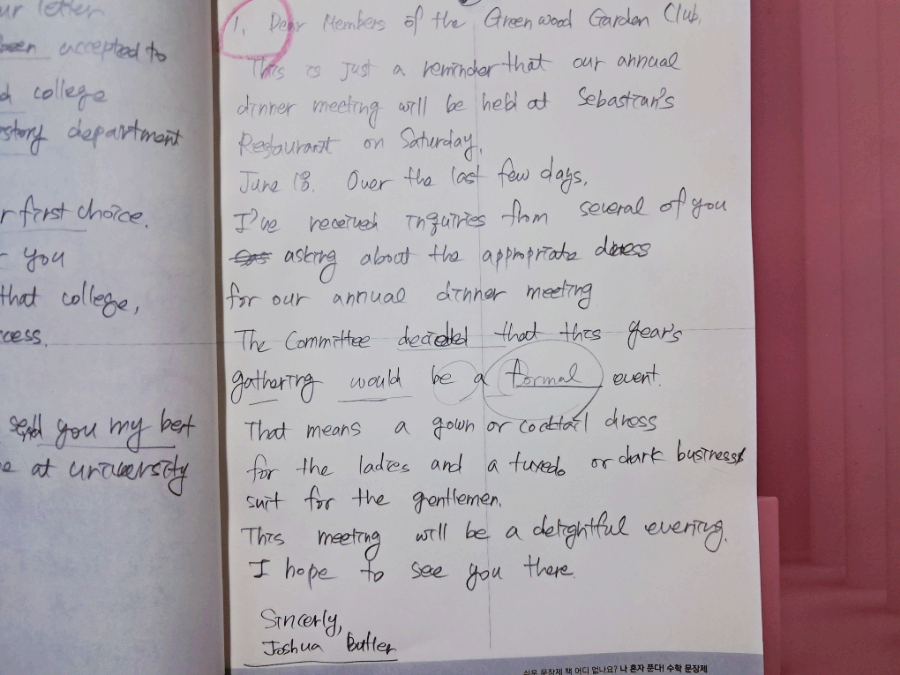 ur letter
been accepted to
d college
story department
r first choice.
- you
that college,
cess.
send you my best
e at university
1. Dear Members of the Greenwood Garden Club,
This is just a reminder that our annual
dinner meeting will be held at Sebastian's
Restaurant on Saturday,
June 18. Over the last few days,
I've received inquiries from several of you
asking about the appropriate dress
for our annual dinner meeting
The Committee decided that this year's
gathering would be a formal event.
That means a gown or cocktail dress
for the ladies and a tuxedo or dark business
suit for the gentlemen.
This meeting will be a delightful evening.
I hope to see you there.
Sincerly,
Joshua Butler
쉬운 문장제 책 어디 없나요? 나 혼자 푼다! 수학 문장제